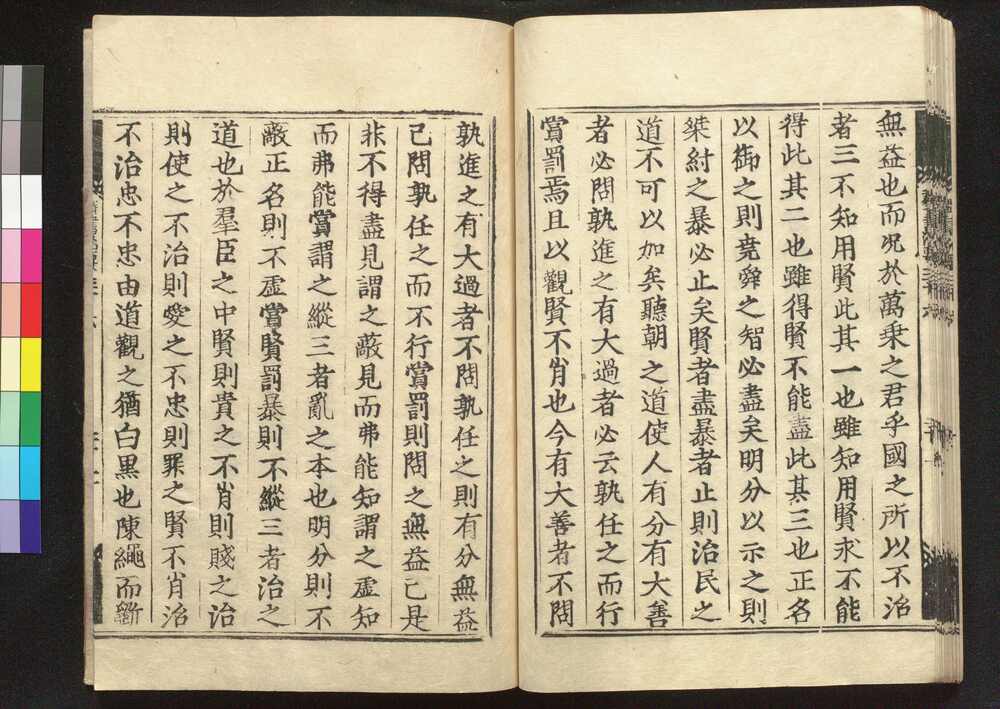 無益也而况於萬乗之君乎國之所以不治
者三不知用賢此其一也雖知用賢求不能
得此其二也雖得賢不能盡此其三也正名
以御之則堯舜之智必盡矣明分以示之則
桀紂之暴必止矣賢者盡暴者止則治民之
道不可以加矣聽朝之道使人有分有大善
者必問孰進之有大過者必云孰任之而行
賞罰焉且以觀賢不肖也今有大善者不問
孰進之有大過者不問孰任之則有分無益
已問孰任之而不行賞罰則問之無益已是
非不得盡見謂之蔽見而弗能知謂之虛知
而弗能賞謂之縱三者亂之本也明分則不
蔽正名則不虛賞賢罰暴則不縱三者治之
道也於羣臣之中賢則貴之不肖則賤之治
則使之不治則愛之不忠則罪之賢不肖治
不治忠不忠由道觀之猶白黑也陳繩而斲